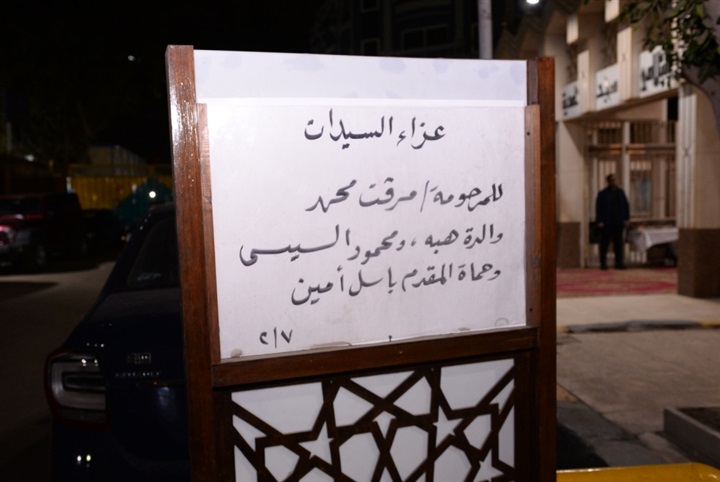 عزاء السيدات
للمرحومة / مرقت محمد
والدة هبه ، ومحمود السيسى
وحماة المقدم باسل أمين
٢/٧